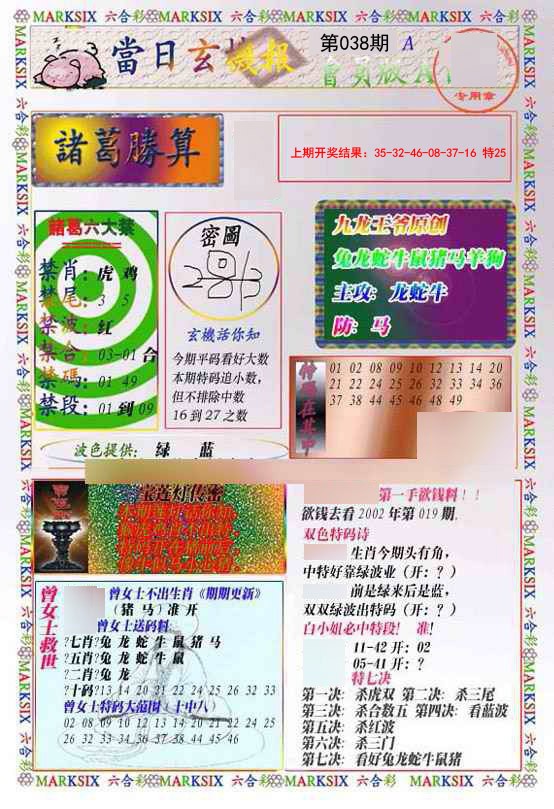 MARKSIX 六合彩 MARKSIX 六合彩 MARKSIX 六合彩 MARKSIX 六合彩
當日玄機報
第038期 A
會員版A
专用章
諸葛勝算
上期开奖结果：35-32-46-08-37-16 特25
諸葛六大禁
禁肖：虎 鸡
禁尾：3 5
禁波：红
禁合：03-01 合
禁碼：01 49
禁段：01 到 09
密圖
玄機活你知
今期平码看好大数
本期特码追小数，
但不排除中数
16 到 27 之数
九龙王爷原创
兔龙蛇牛鼠猪马羊狗
主攻：龙蛇牛
防：马
特碼在其中
01 02 08 09 10 12 13 14 20
21 22 24 25 26 32 33 34 36
37 38 44 45 46 48 49
波色提供： 绿 蓝
宝莲灯传密
曾女士救世
曾女士不出生肖《期期更新》
（猪 马）准 开
曾女士送码料
?七肖?兔 龙 蛇 牛 鼠 猪 马
?五肖?兔 龙 蛇 牛 鼠
?二肖?兔 龙
?十码?13 14 20 21 22 24 25 26 32 33
曾女士特码大范围（十中八）
02 08 09 10 12 13 14 20 21 22 24 25
26 32 33 34 36 37 38 44 45 46
第一手欲钱料！！
欲钱去看 2002 年第 019 期.
双色特码诗
生肖今期头有角，
中特好靠绿波业（开：？）
前是绿来后是蓝，
双双绿波出特码（开：？）
白小姐必中特段！ 准！
11-42 开：02
05-41 开：？
特七决
第一决：杀虎双 第二决：杀三尾
第三决：杀合数五 第四决：看蓝波
第五决：杀红波
第六决：杀三门
第七决：看好兔龙蛇牛鼠猪
MARKSIX 六合彩 MARKSIX 六合彩 MARKSIX 六合彩 MARKSIX 六合彩